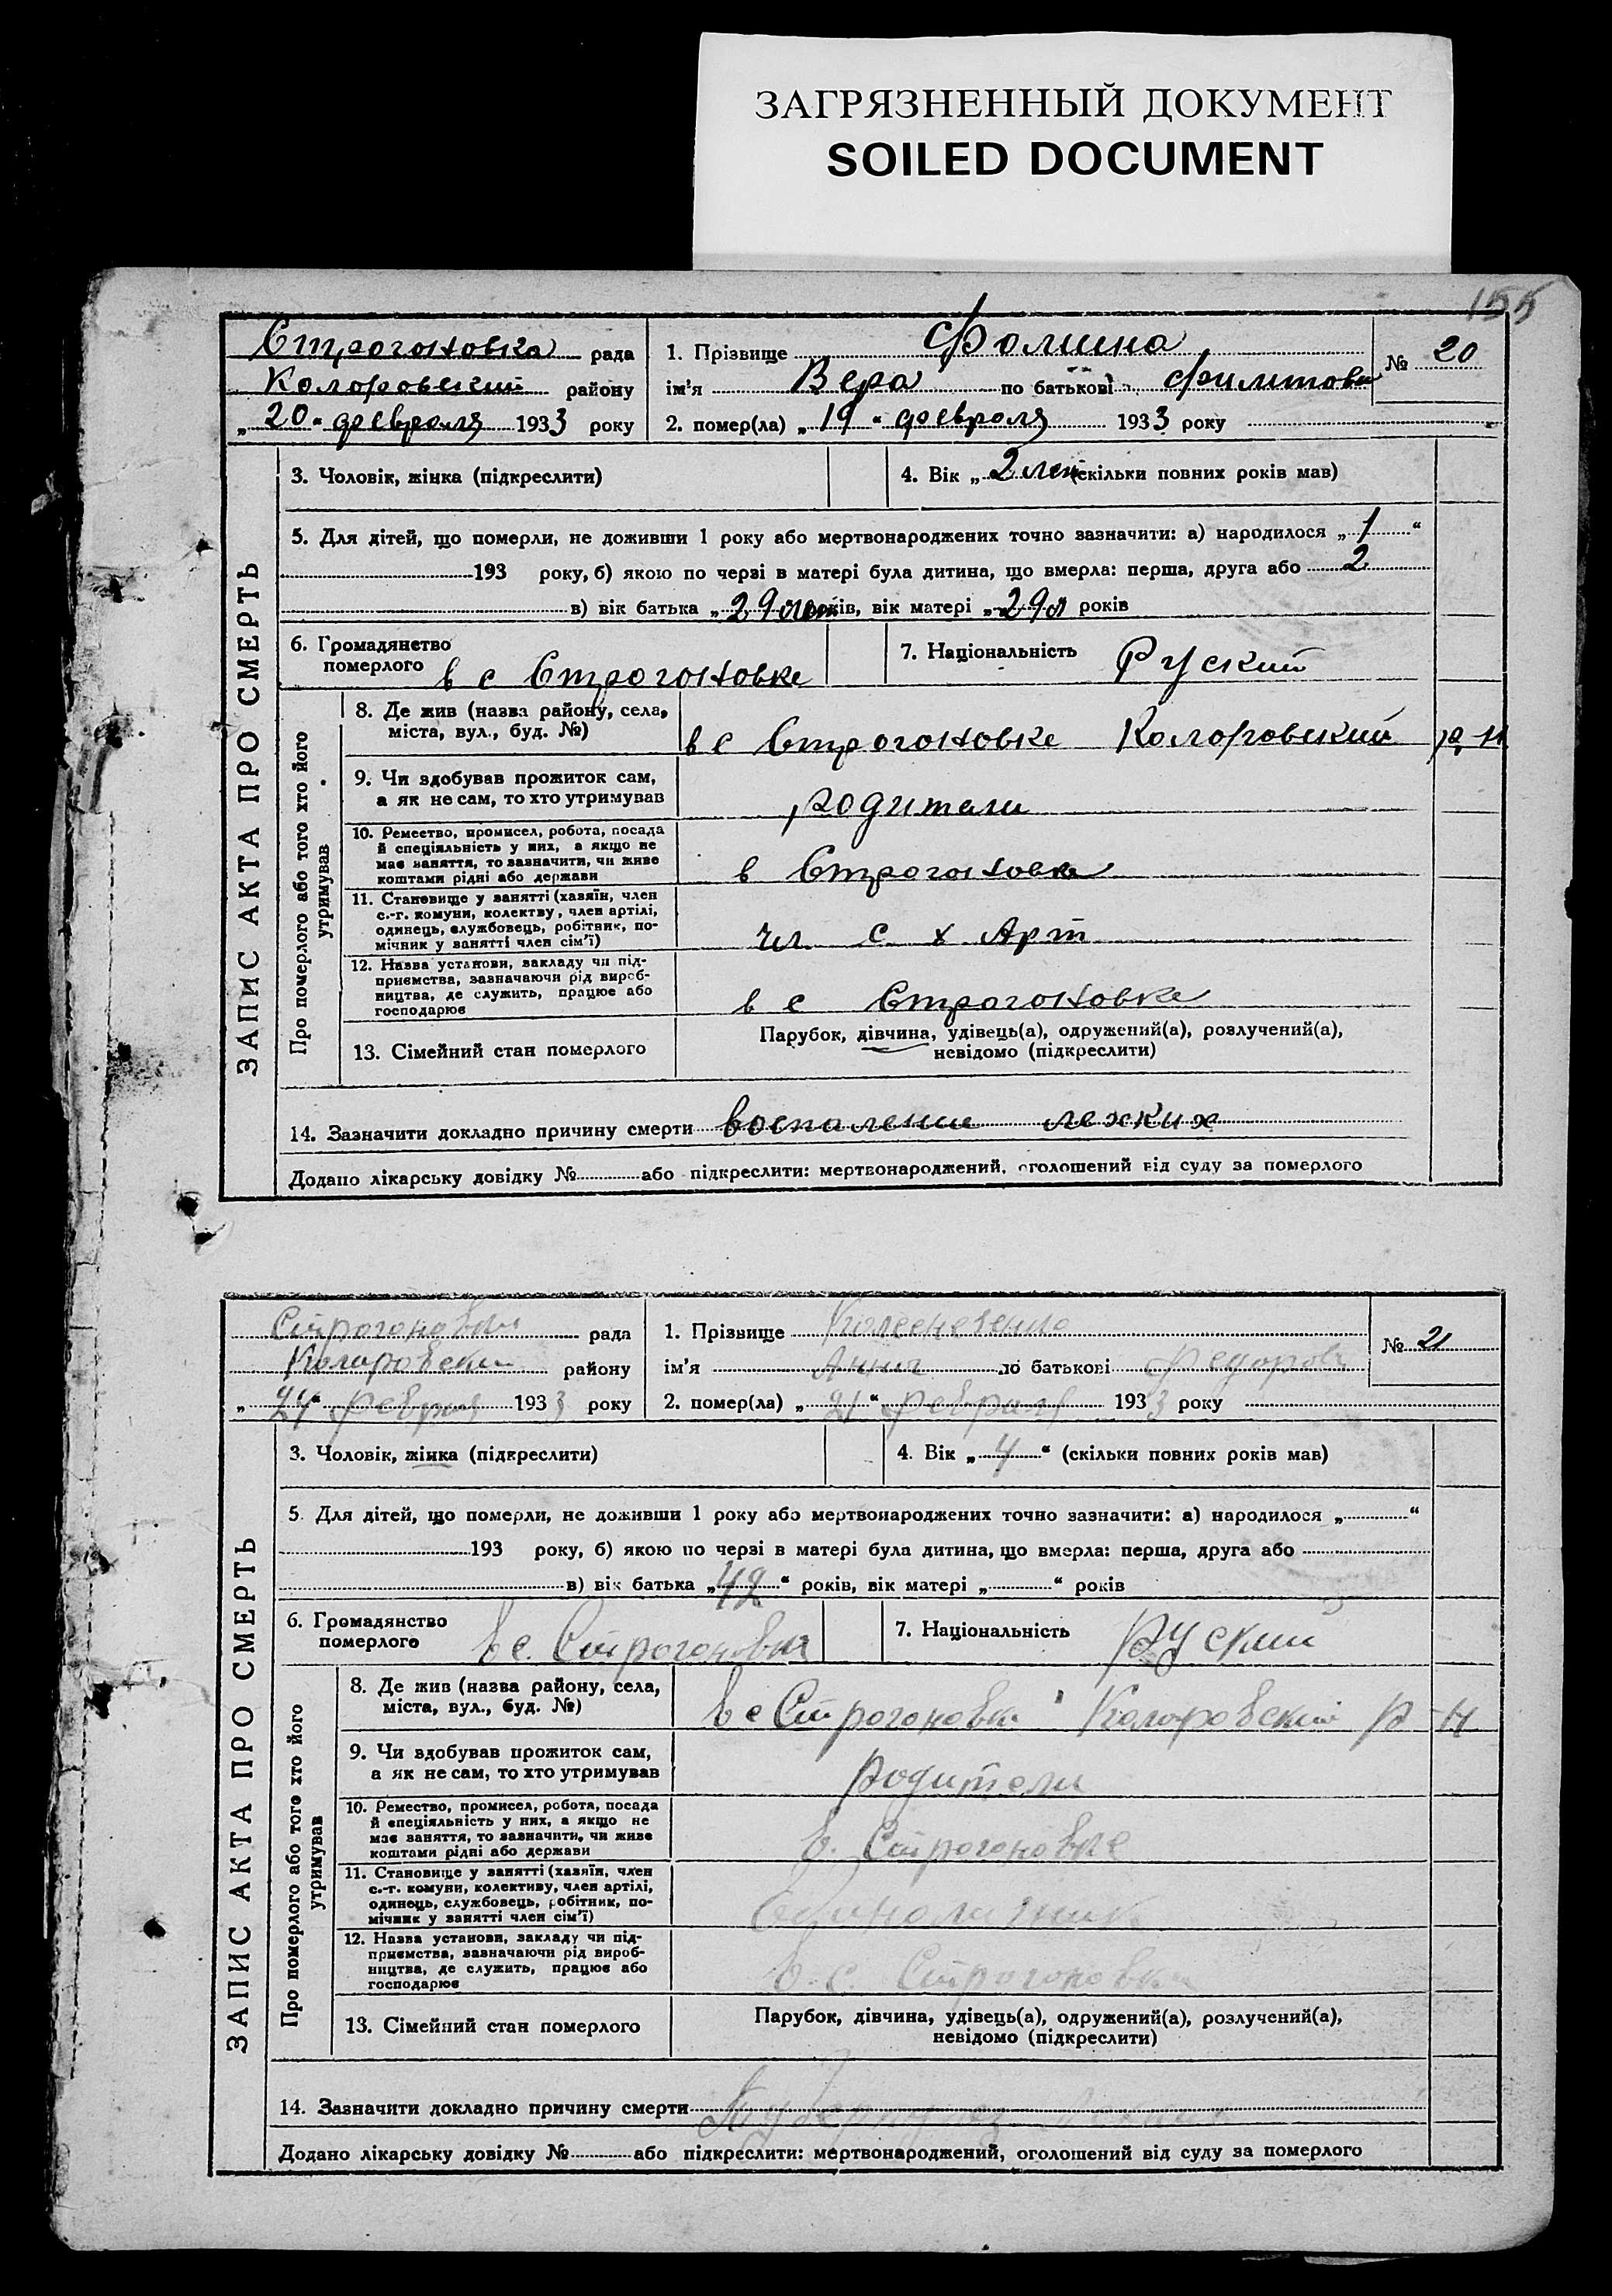 ЗАГРЯЗНЕННЫЙ ДОКУМЕНТ
SOILED DOCUMENT
155
Строгоновка рада
Колоровский району
„20“ февраля 1933 року
1. Прізвище Фомина
№ 20
ім'я Вера по батькові
2. помер(ла) „19“ февраля 1933 року
ЗАПИС АКТА ПРО СМЕРТЬ
3. Чоловік, жінка (підкреслити)
4. Вік „2 лет (скільки повних років мав)
5. Для дітей, що померли, не доживши 1 року або мертвонароджених точно зазначити: а) народилося „1“
193 року, б) якою по черзі в матері була дитина, що вмерла: перша, друга або 2
в) вік батька „29 лет років, вік матері „29 л років
6. Громадянство
померлого в с Строгоновке
7. Національність Руский
Про померлого або того хто його
утримував
8. Де жив (назва району, села,
міста, вул., буд. №)
в с Строгоновке Колоровский р-н
9. Чи здобував прожиток сам,
а як не сам, то хто утримував
родители
10. Ремество, промисел, робота, посада
й спеціяльність у них, а якщо не
має заняття, то зазначити, чи живе
коштами рідні або держави
в Строгоновке
11. Становище у занятті (хазяїн, член
с.-г. комуни, колективу, член артілі,
одинець, службовець, робітник, по-
мічник у занятті член сім'ї)
чл с х Арт
12. Назва установи, закладу чи під-
приємства, зазначаючи рід вироб-
ництва, де служить, працює або
господарює
в с Строгоновке
13. Сімейний стан померлого
Парубок, дівчина, удівець(а), одружений(а), розлучений(а),
невідомо (підкреслити)
14. Зазначити докладно причину смерти воспаление лежких
Додано лікарську довідку № або підкреслити: мертвонароджений, оголошений від суду за померлого
Строгоновка рада
Коларовский району
1933 року
1. Прізвище
№ 21
ім'я Анна по батькові Федоров
2. помер(ла) „21“ февраля 1933 року
ЗАПИС АКТА ПРО СМЕРТЬ
3. Чоловік, жінка (підкреслити)
4. Вік „4“ (скільки повних років мав)
5. Для дітей, що померли, не доживши 1 року або мертвонароджених точно зазначити: а) народилося „ “
193 року, б) якою по черзі в матері була дитина, що вмерла: перша, друга або
в) вік батька „42“ років, вік матері „ “ років
6. Громадянство
померлого в с. Строгоновка
7. Національність руский
Про померлого або того хто його
утримував
8. Де жив (назва району, села,
міста, вул., буд. №)
в с Строгоновка Коларовский р-н
9. Чи здобував прожиток сам,
а як не сам, то хто утримував
родители
10. Ремество, промисел, робота, посада
й спеціяльність у них, а якщо не
має заняття, то зазначити, чи живе
коштами рідні або держави
в. Строгоновке
11. Становище у занятті (хазяїн, член
с.-г. комуни, колективу, член артілі,
одинець, службовець, робітник, по-
мічник у занятті член сім'ї)
Единоличник
12. Назва установи, закладу чи під-
приємства, зазначаючи рід вироб-
ництва, де служить, працює або
господарює
в. с. Строгоновка
13. Сімейний стан померлого
Парубок, дівчина, удівець(а), одружений(а), розлучений(а),
невідомо (підкреслити)
14. Зазначити докладно причину смерти
Додано лікарську довідку № або підкреслити: мертвонароджений, оголошений від суду за померлого